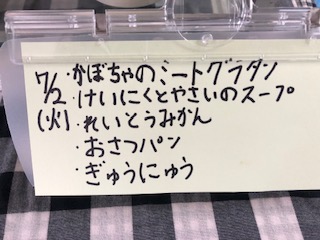 7/2 ・かぼちゃのミートグラタン
(火) ・けいにくとやさいのスープ
・れいとうみかん
・おさつパン
・ぎゅうにゅう